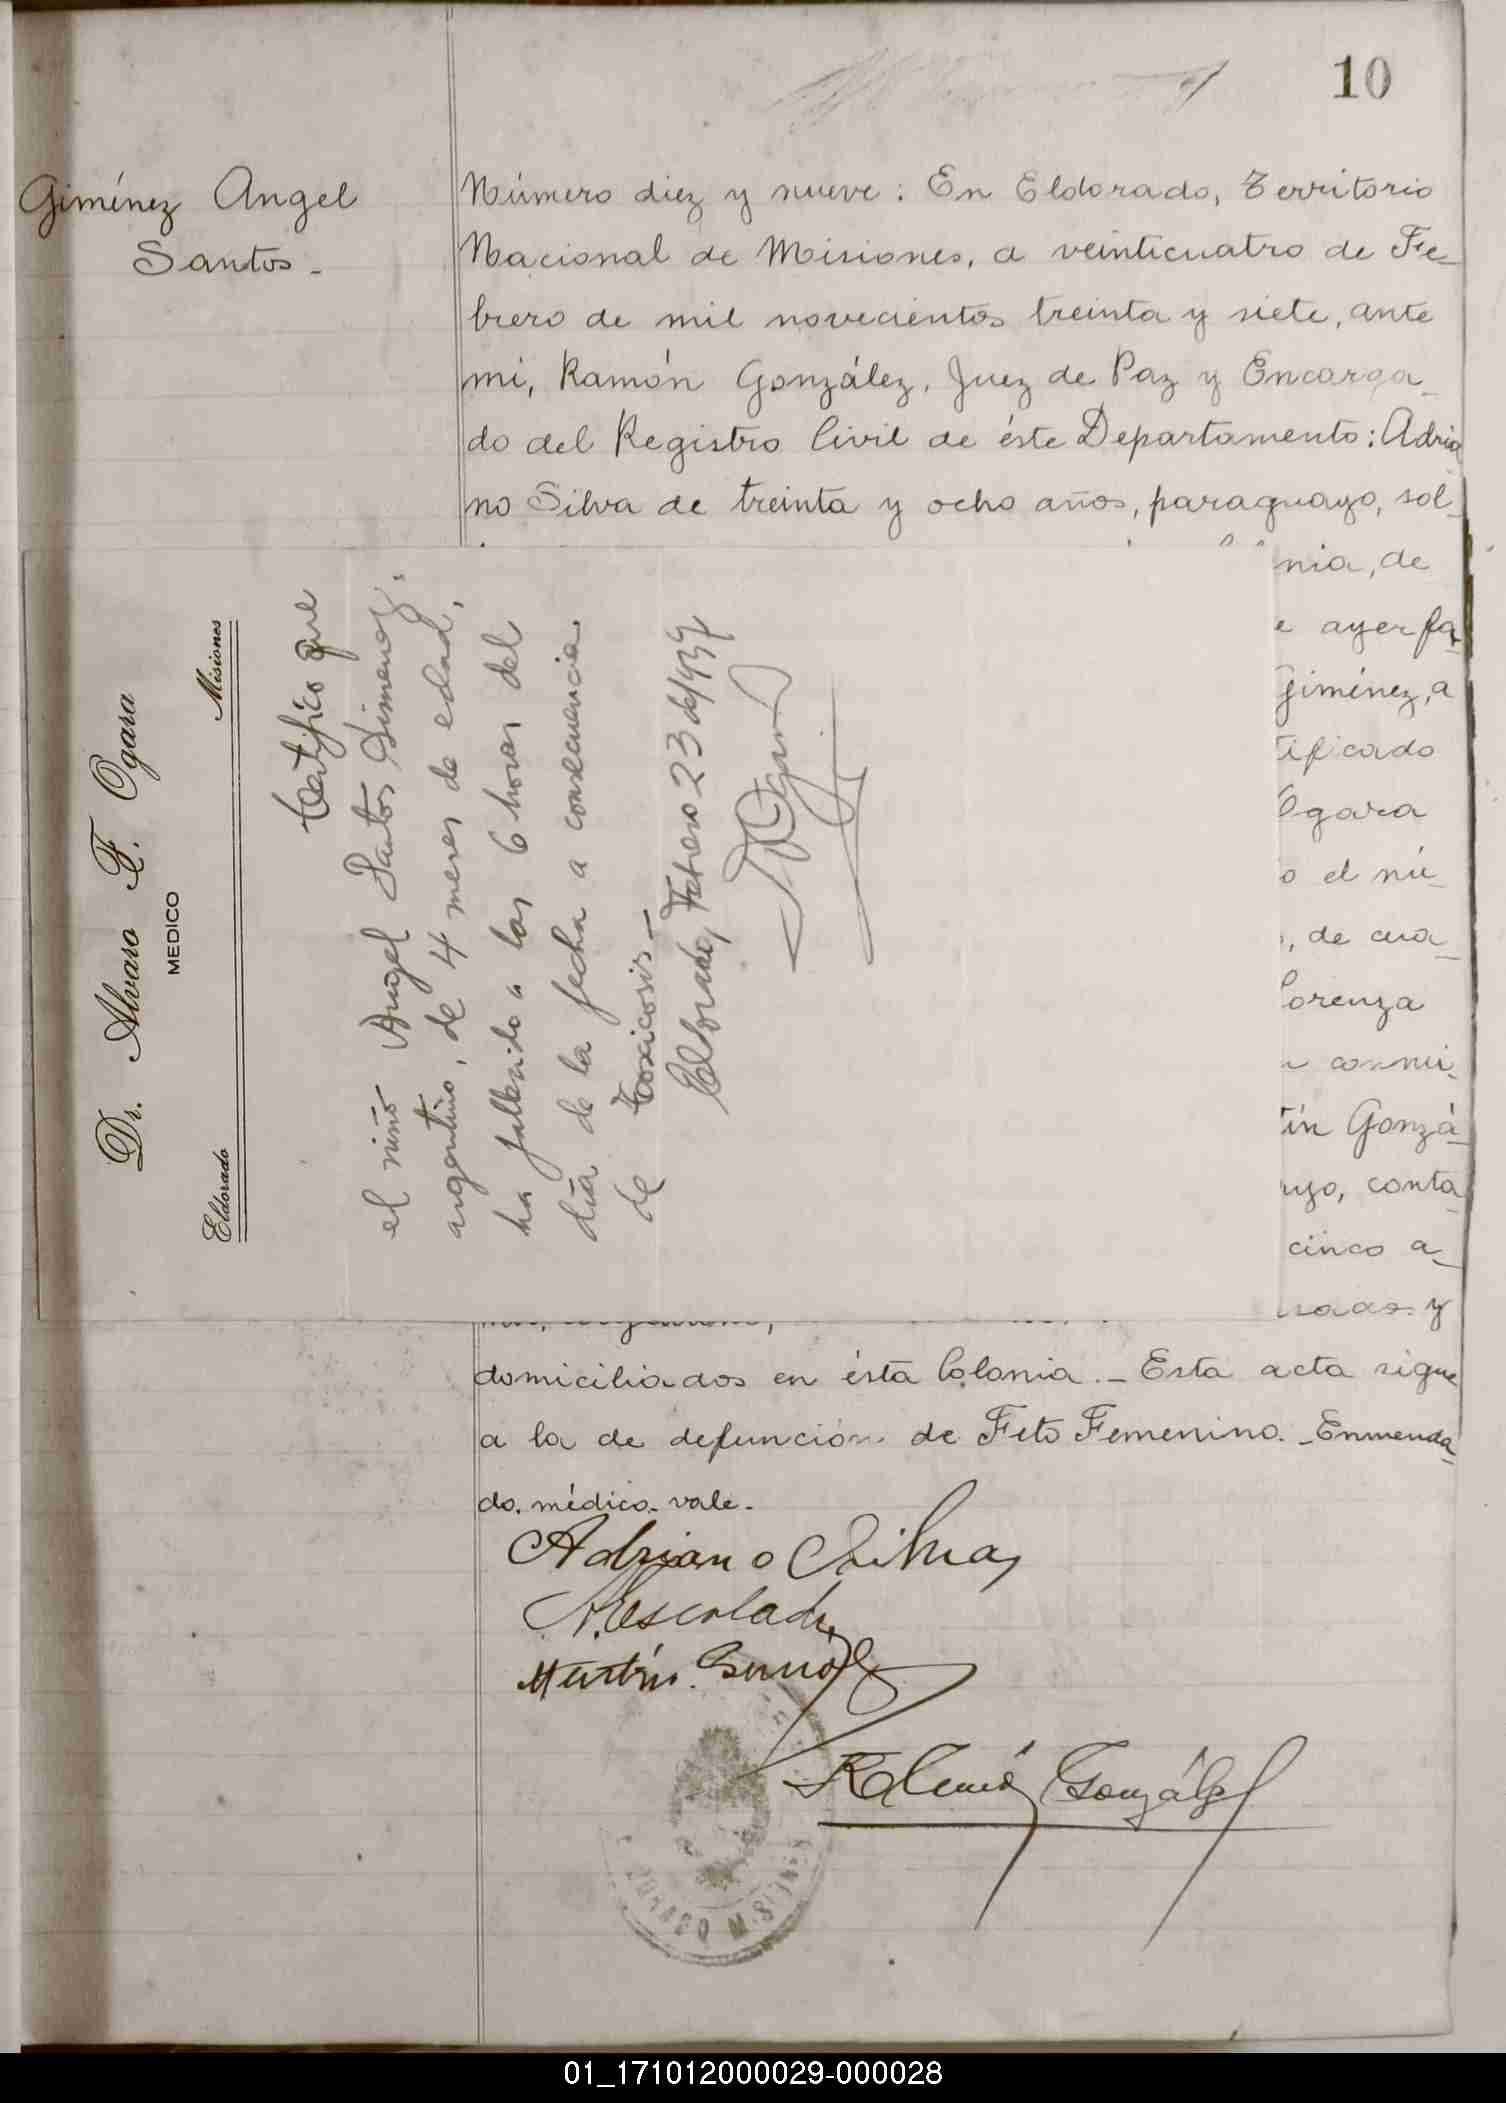 10
Giménez Angel
Santos-
Número diez y nueve: En Eldorado, Territorio
Nacional de Misiones, a veinticuatro de Fe-
brero de mil novecientos treinta y siete, ante
mí, Ramón González, Juez de Paz y Encarga-
do del Registro Civil de éste Departamento: Adria
no Silva de treinta y ocho años, paraguayo, sol-
nia, de
e ayer fa-
Giménez, a
tificado
Ogara
o el nú-
, de cua-
Lorenza
connu-
tín Gonzá-
uyo, conta
cinco a-
y
domiciliados en ésta Colonia.- Esta acta sigue
a la de defunción de Feto Femenino.-Enmenda-
do. médico. vale.-
Adriano Silva
Martín.
Ramón González
Dr. Alvaro F. Ogara
MEDICO
Eldorado Misiones
Certifico que
el niño Angel Santos Gimenez,
argentino, de 4 meses de edad,
ha fallecido a las 6 horas del
día de la fecha a consecuencia
de Toxicosis-
Eldorado, Febrero 23 de/937
01_171012000029-000028